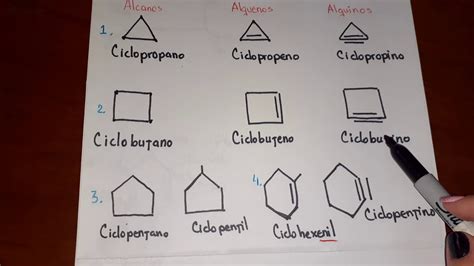 Alcanos Alquenos Alquinos
1.
Ciclopropano Ciclopropeno Ciclopropino
2.
Ciclobutano Ciclobuteno Ciclobutino
3. 4.
Ciclopentano Ciclopentil Ciclohexenil Ciclopentino